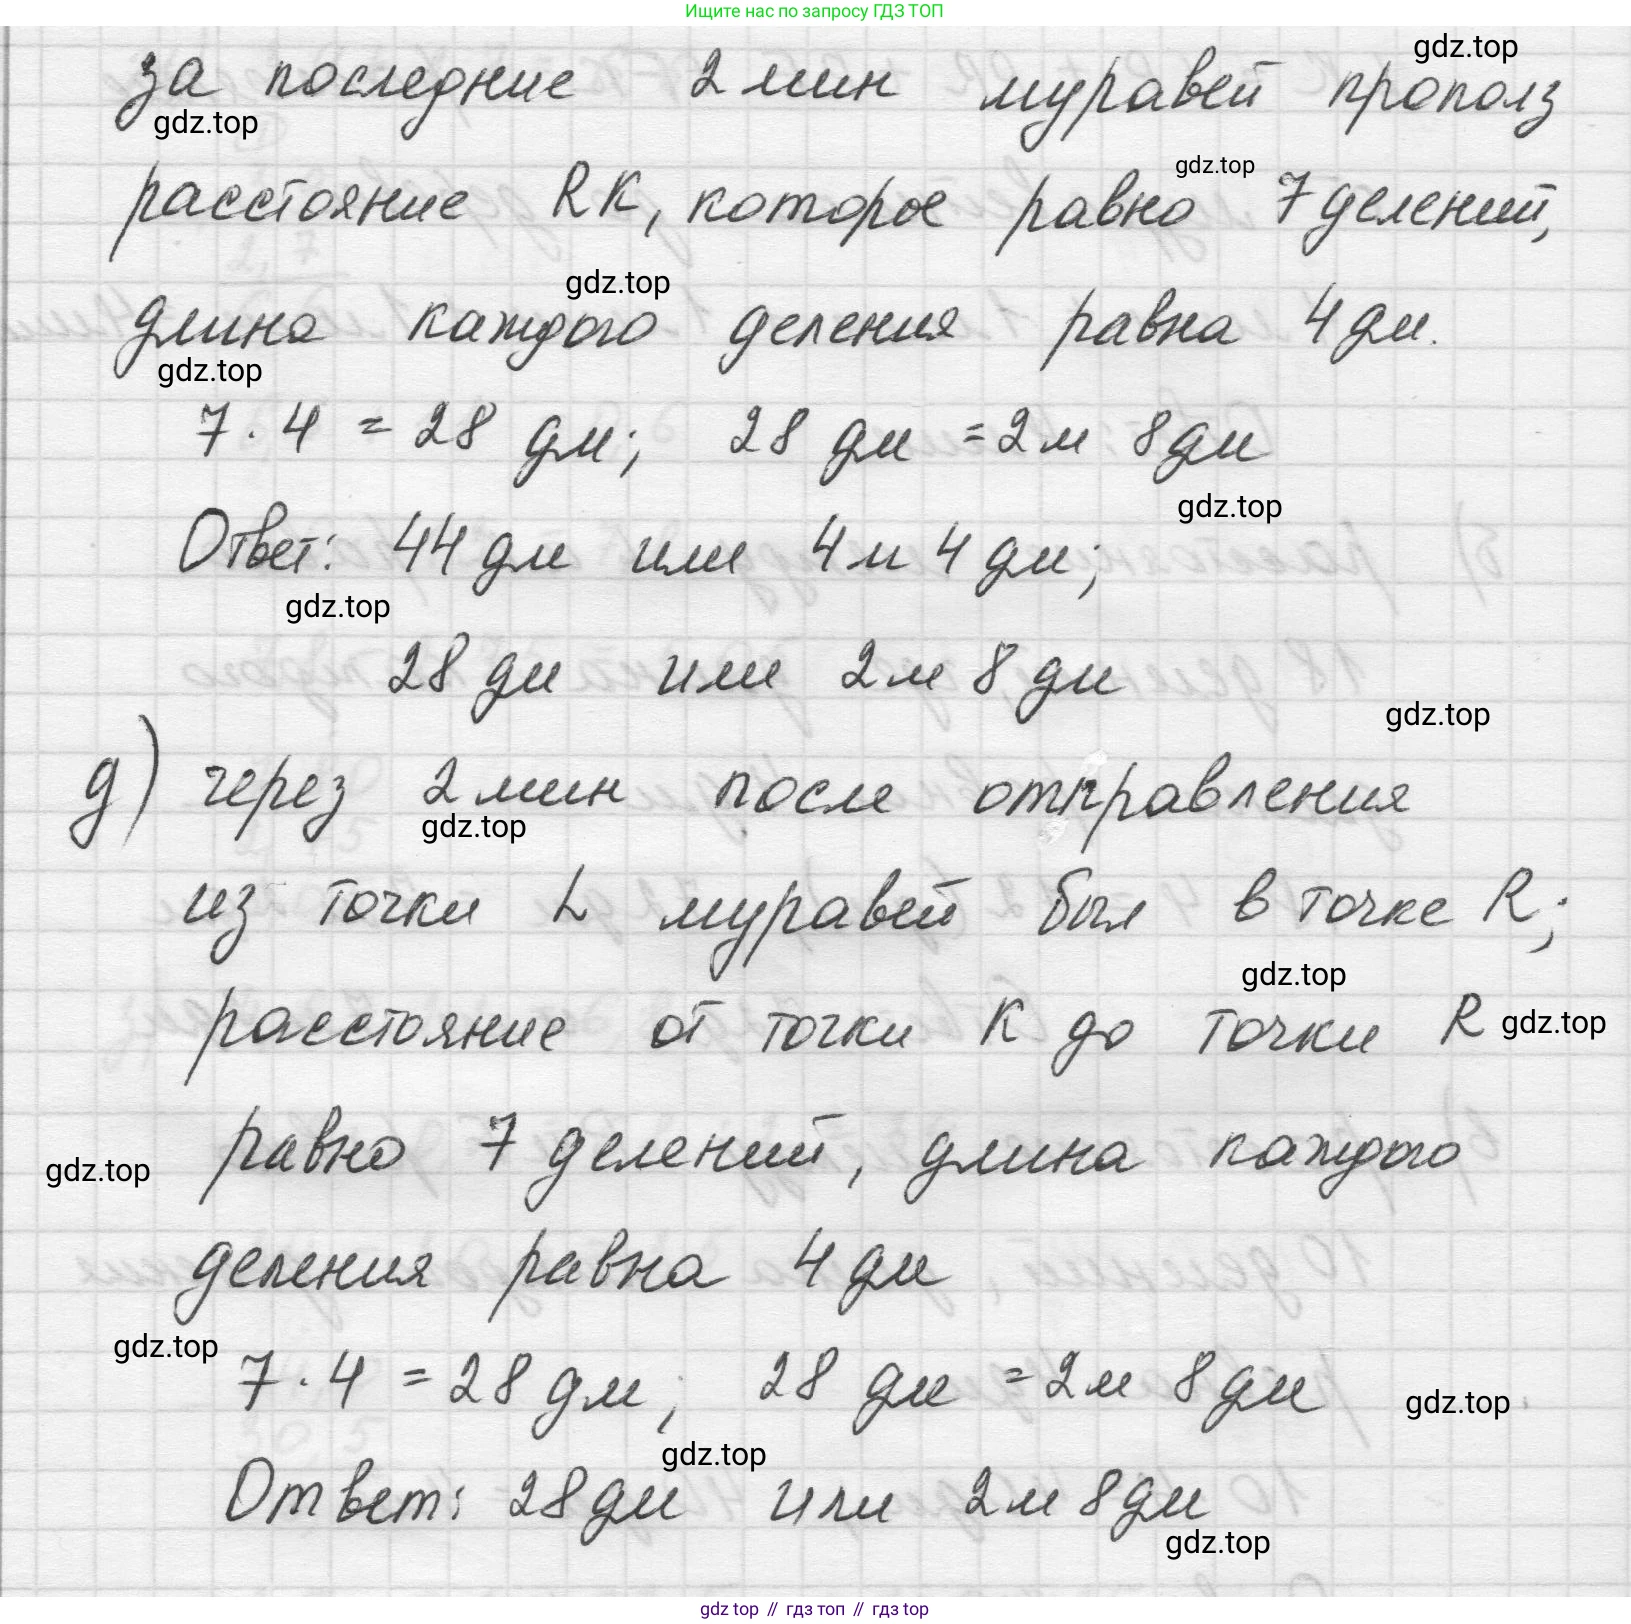 Ищите нас по запросу ГДЗ ТОП
gdz.top
за последние 2 мин муравей прополз
gdz.top
gdz.top
расстояние RK, которое равно 7 делений,
gdz.top
длина каждого деления равна 4 дм.
gdz.top
7 · 4 = 28 дм; 28 дм = 2 м 8 дм
gdz.top
Ответ: 44 дм или 4 м 4 дм;
gdz.top
28 дм или 2 м 8 дм
gdz.top
д) через 2 мин после отправления
gdz.top
из точки L муравей был в точке R;
gdz.top
расстояние от точки K до точки R
gdz.top
равно 7 делений, длина каждого
gdz.top
деления равна 4 дм
gdz.top
7 · 4 = 28 дм; 28 дм = 2 м 8 дм
gdz.top
gdz.top
Ответ: 28 дм или 2 м 8 дм
gdz.top
gdz top // гдз топ // гдз top